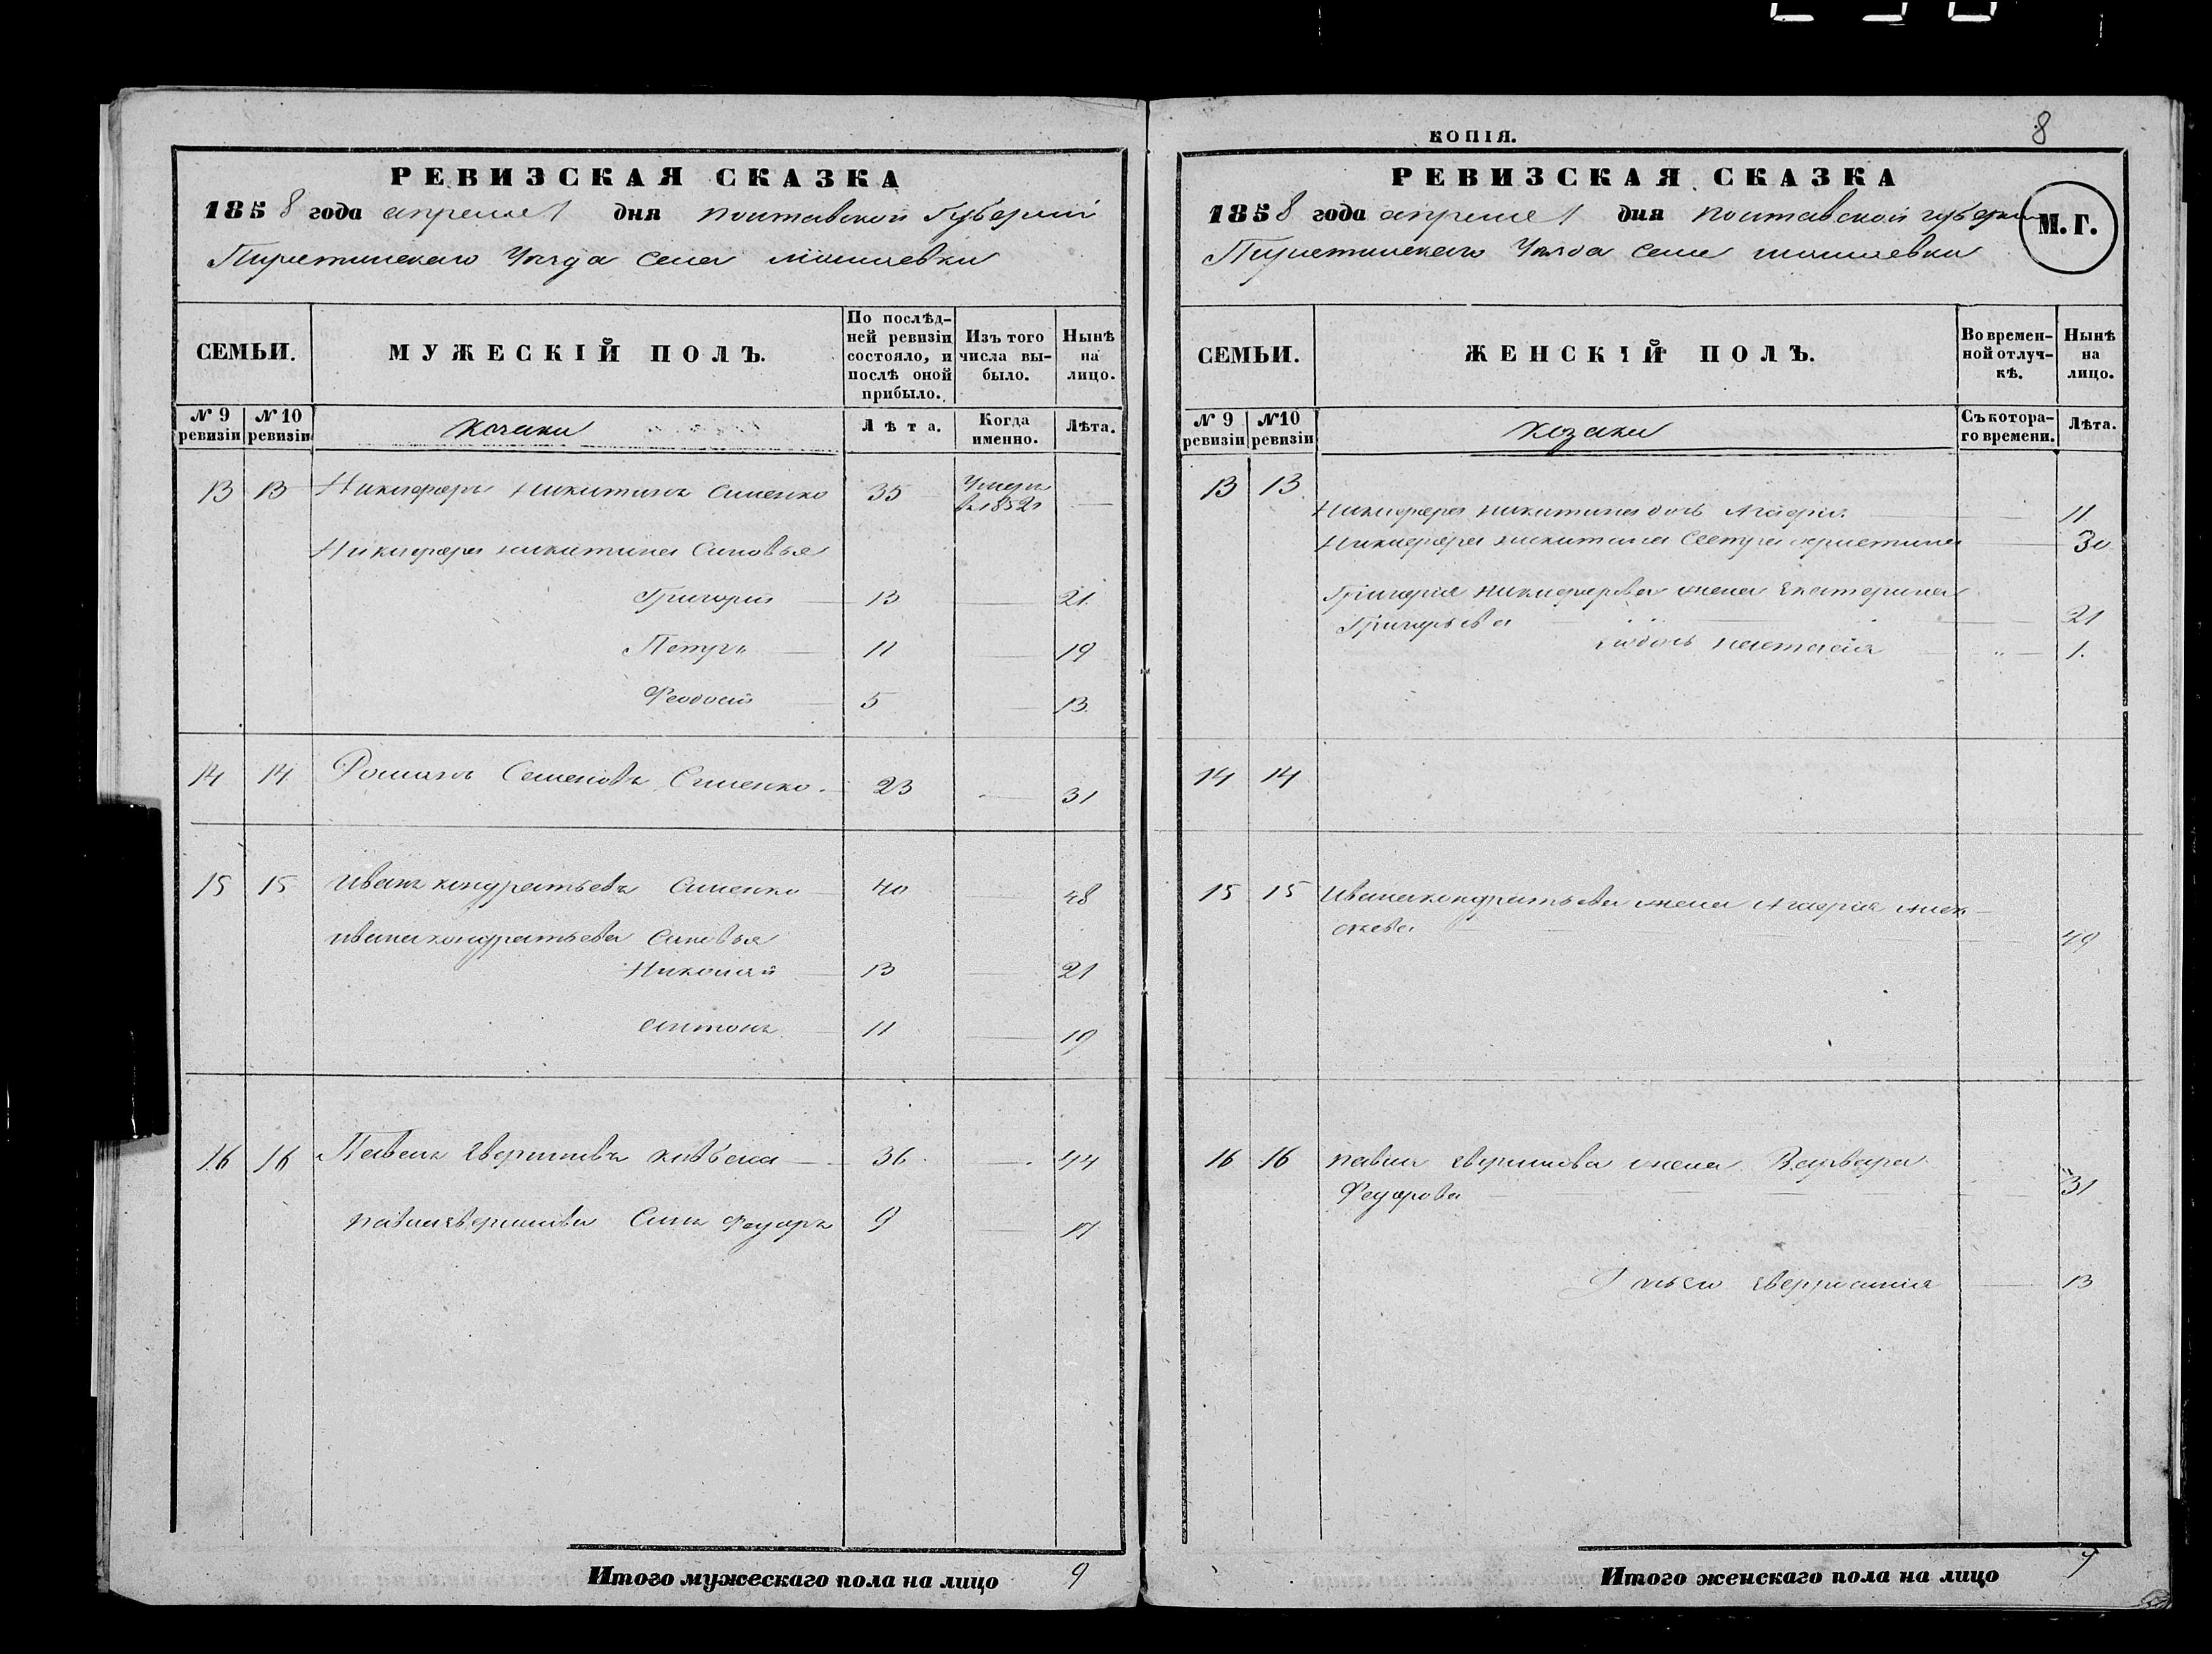 РЕВИЗСКАЯ СКАЗКА
1858 года апреля 1 дня Полтавской Губернiи
Пирятинскаго Уезда Села
СЕМЬИ.
МУЖЕСКІЙ ПОЛЪ.
По послѣд-
ней ревизіи
состояло, и
послѣ оной
прибыло.
Изъ того
числа вы-
было.
Нынѣ
на
лицо.
№ 9
ревизіи
№ 10
ревизіи
Козаки
Лѣта.
Когда
именно.
Лѣта.
13 13 Никифоръ Никитинъ Сименко 35 Умеръ —
в 1852
Никифора Никитина Сыновья
Григорий — 13 — 21
Петръ — 11 — 19
Феодосий — 5 — 13
14 14 Романъ Семеновъ Сименко. 23 — 31
15 15 Иванъ Кондратьевъ Сименко 40 — 48
Ивана Кондратьева Сыновья
Николай — 13 — 21
Антонъ — 11 — 19
16 16 Павелъ 36 — 44
Павла Сынъ Федоръ 9 — 17
Итого мужескаго пола на лицо 9
КОПІЯ.
8
РЕВИЗСКАЯ СКАЗКА
1858 года апреля 1 дня Полтавской губернiи
М.Г.
Пирятинскаго Уезда Села
СЕМЬИ.
ЖЕНСКІЙ ПОЛЪ.
Во времен-
ной отлуч-
кѣ.
Нынѣ
на
лицо.
№ 9
ревизіи
№10
ревизіи
Козаки
Съ котора-
го времени.
Лѣта.
13 13
Никифора Никитина дочь Агафiя — 11
Никифора Никитина Сестра Христина — 30
Григорiя Никифорова жена Екатерина
Григорьева — 21
дочь — 1.
14 14
15 15 Ивана Кондратьева жена Агафiя Алек-
сеева — 49
16 16 Павла жена Варвара
Федорова — 31
— 13
Итого женскаго пола на лицо 7